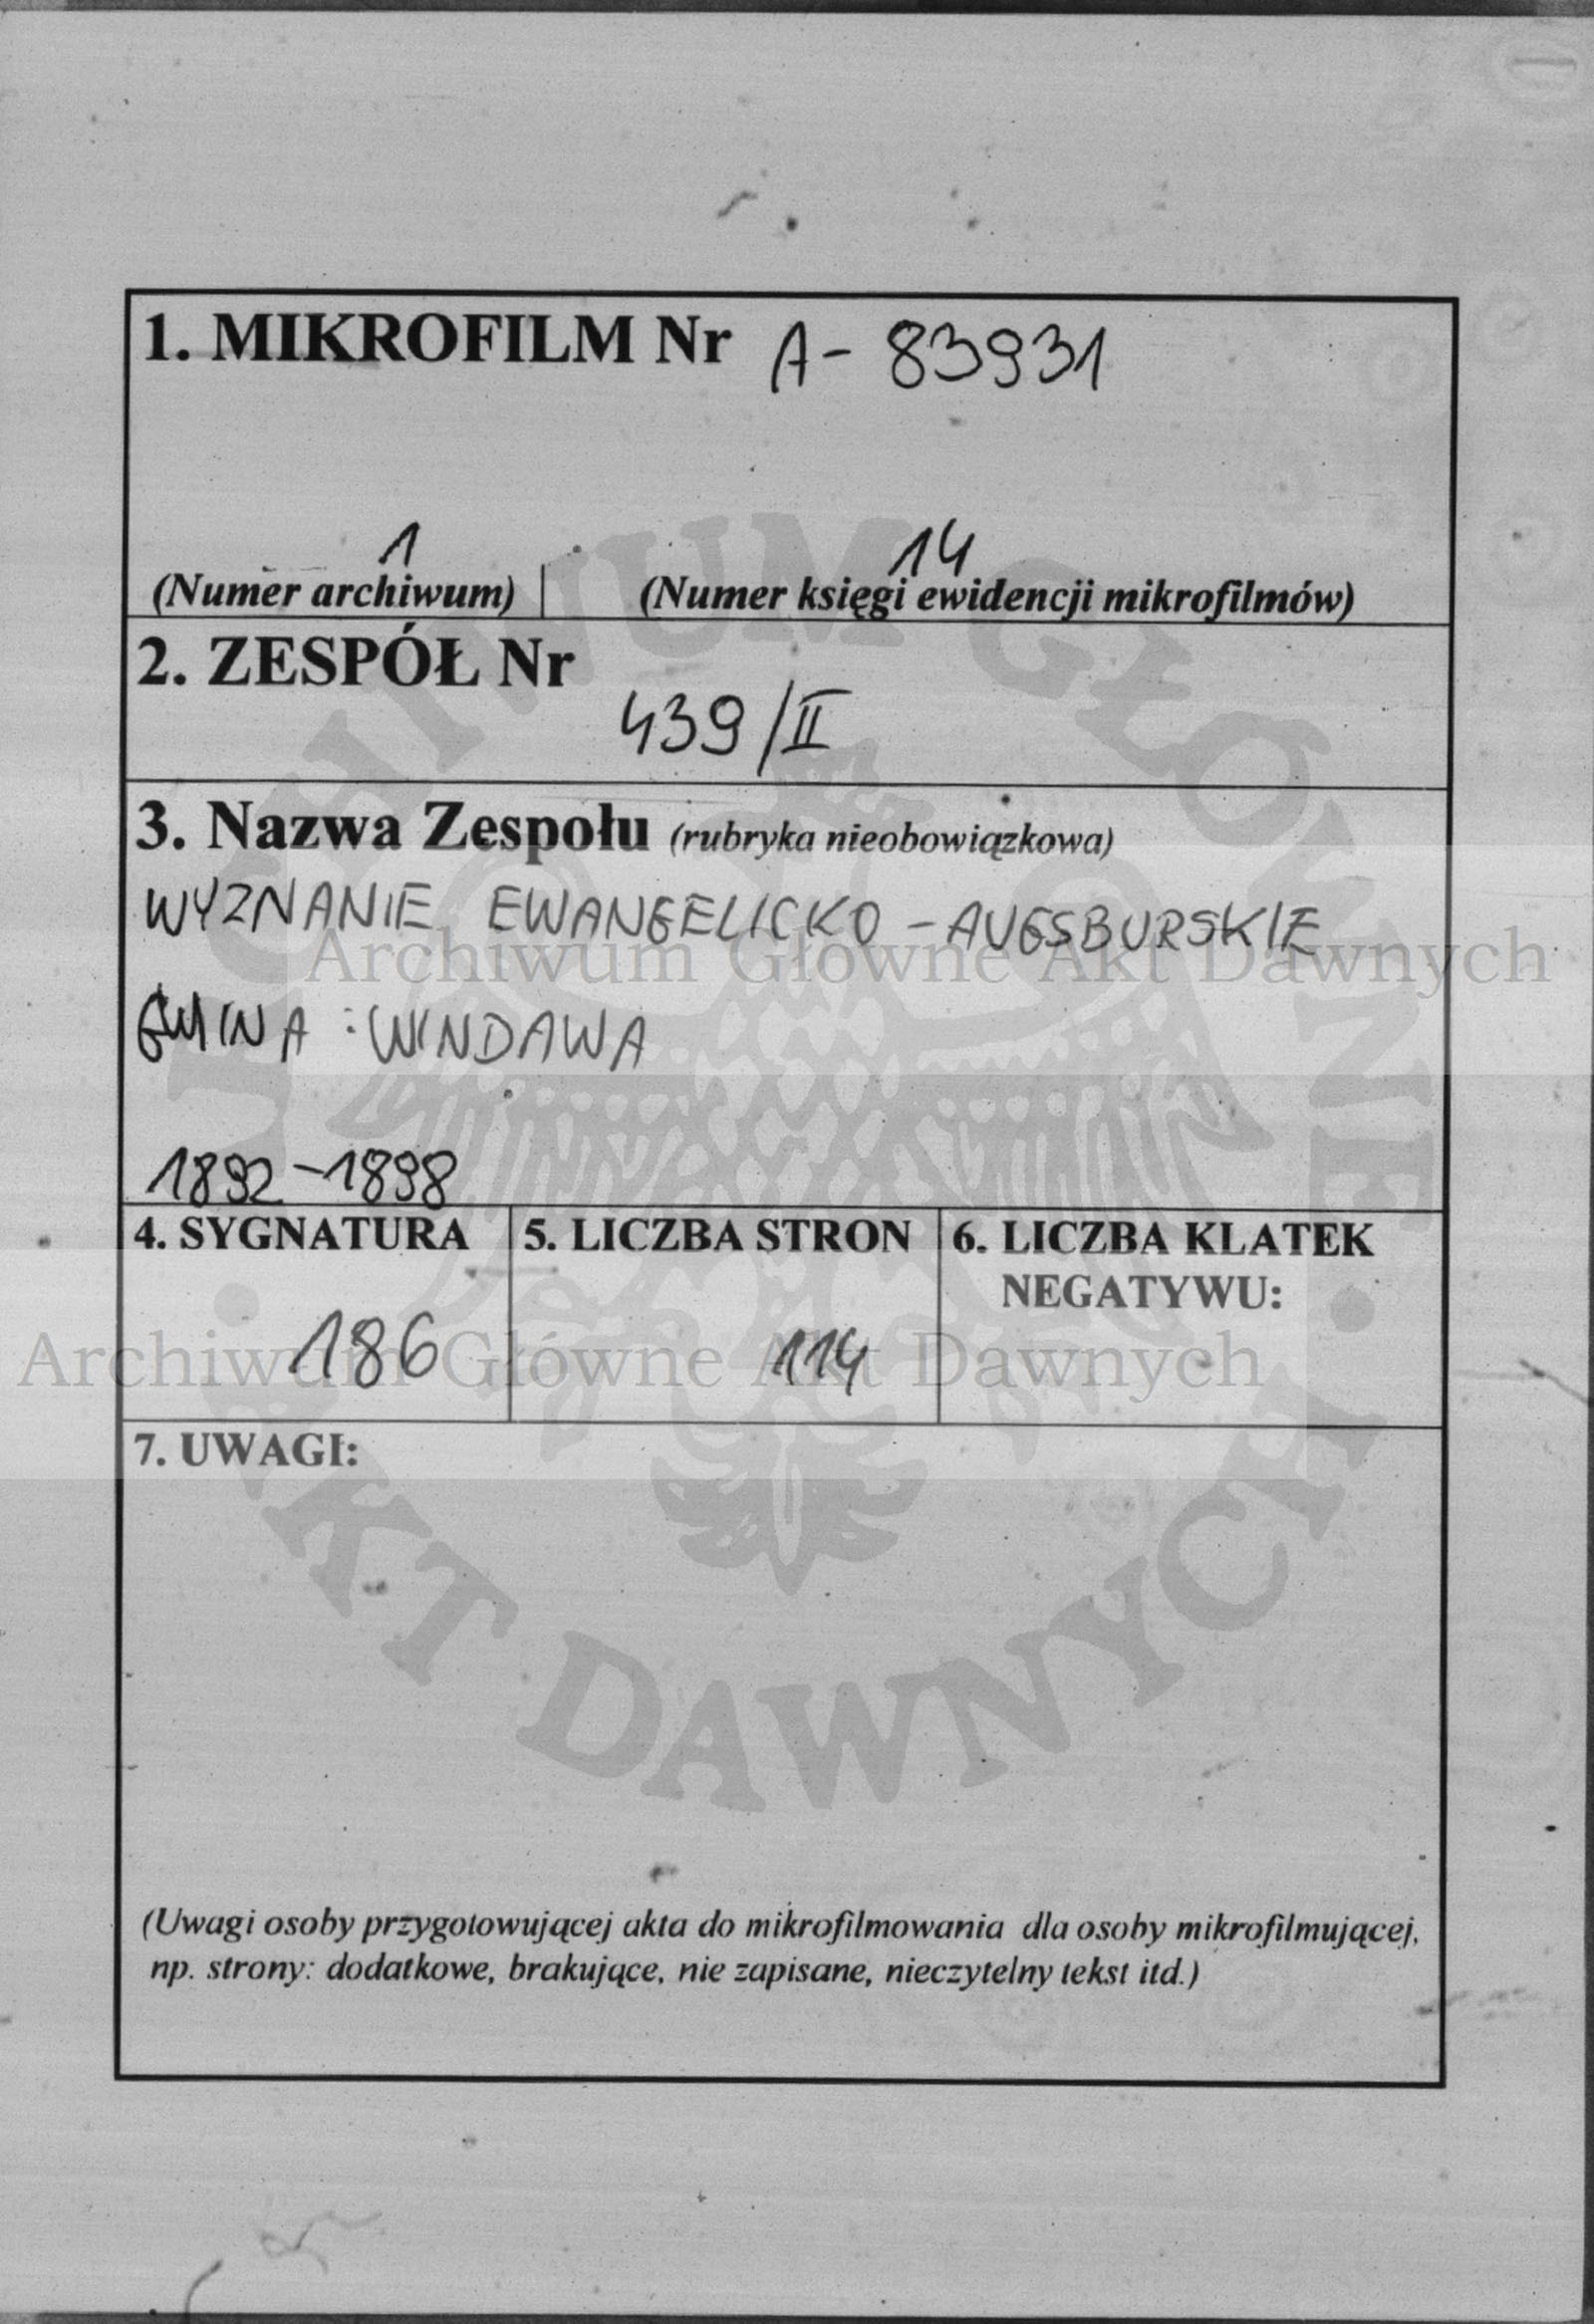 1. MIKROFILM Nr A- 83931
1 14
(Numer archiwum) (Numer księgi ewidencji mikrofilmów)
2. ZESPÓŁ Nr
439/II
3. Nazwa Zespołu (rubryka nieobowiązkowa)
WYZNANIE EWANGELICKO - AUGSBURSKIE
Archiwum Główne Akt Dawnych
GMINA: WINDAWA
1892-1898
4. SYGNATURA 5. LICZBA STRON 6. LICZBA KLATEK
NEGATYWU:
186 114
Archiwum Główne Akt Dawnych
7. UWAGI:
ARCHIWUM GŁÓWNE AKT DAWNYCH
(Uwagi osoby przygotowującej akta do mikrofilmowania dla osoby mikrofilmującej,
np. strony: dodatkowe, brakujące, nie zapisane, nieczytelny tekst itd.)